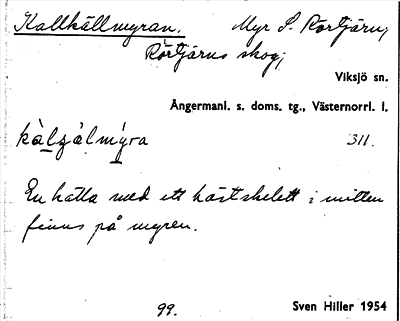 Kallkällmyran. Myr S. Rörtjärn,
Rörtjärns skog;
Viksjö sn.
Ångermanl. s. doms. tg., Västernorrl. l.
kàlʒàlmýra 311.
En hätta med ett hästskelett i mitten
finns på myren.
99. Sven Hiller 1954